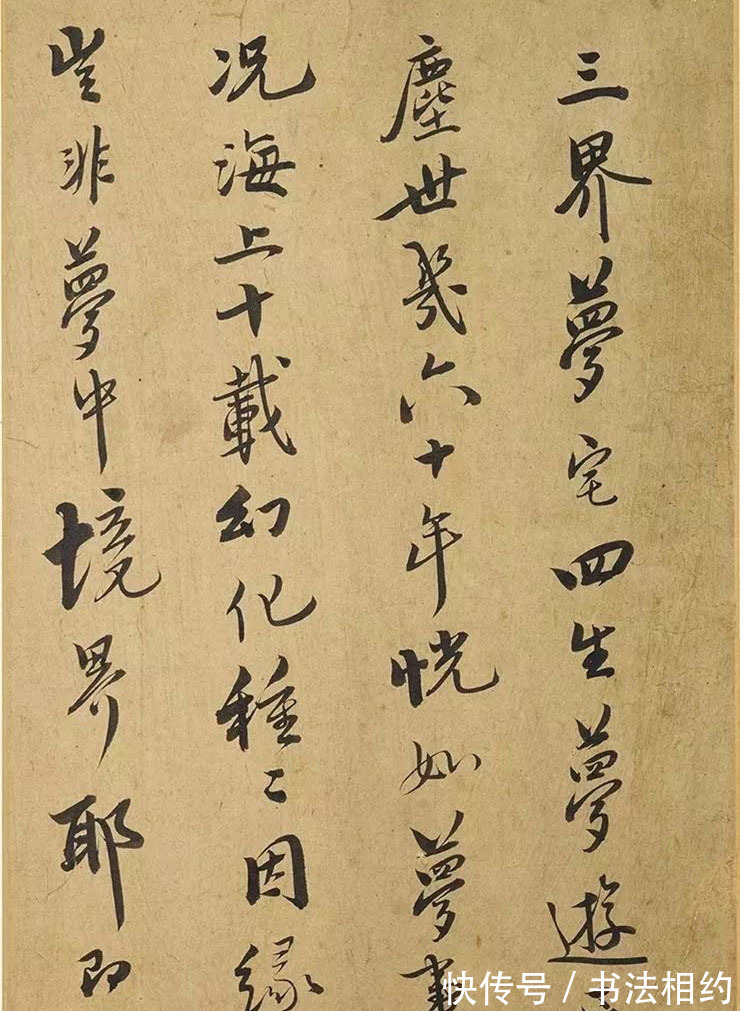 三界夢宅四生夢遊
塵世幾六十年恍如夢事
況海上十載幻化種〻因緣
豈非夢中境界耶即
快传号/书法相约